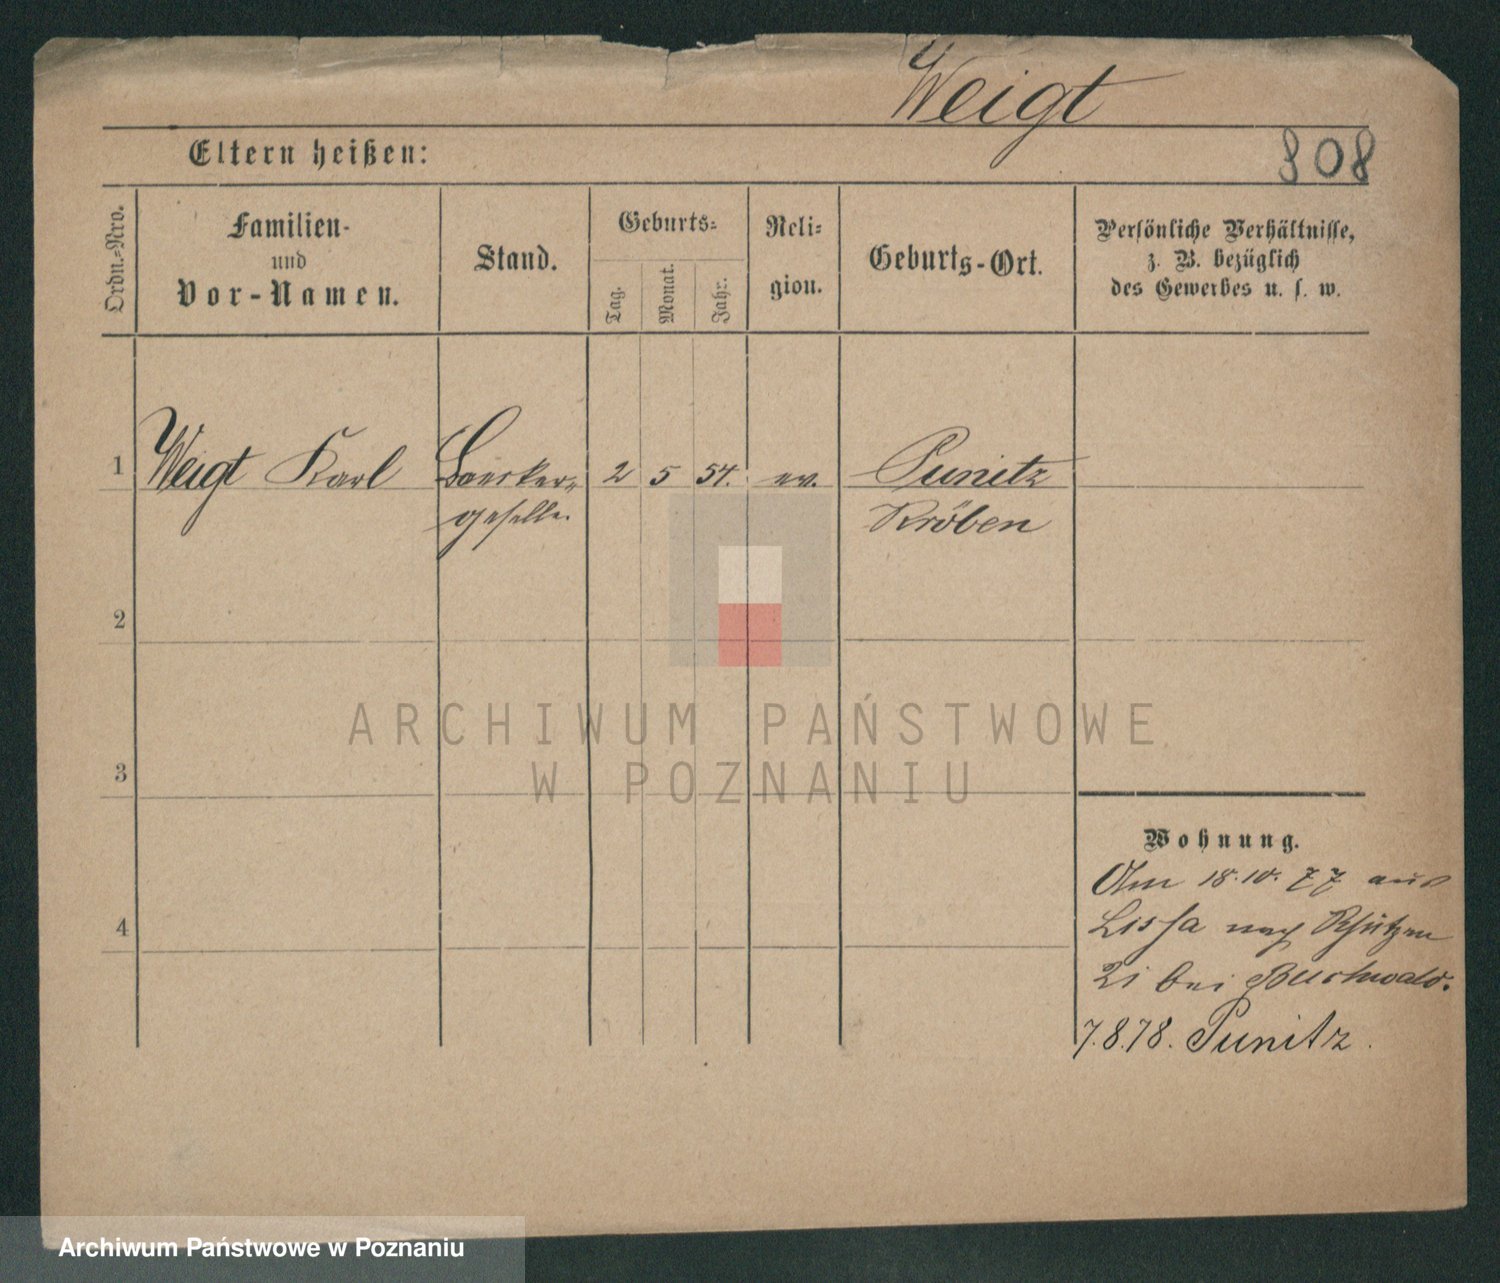 Weigt
808
Eltern heißen:
Ordn.-Nro.
Familien-
und
Vor-Namen.
Stand.
Geburts-
Tag.
Monat.
Jahr.
Reli-
gion.
Geburts-Ort.
Persönliche Verhältnisse,
z. B. bezüglich
des Gewerbes u. s. w.
1 Weigt Karl 2 5 54. ev. Punitz
geselle. Kröben
2
3
4
Wohnung.
Am 18.10.77 aus
Lissa nach Schützen
21 bei Buchwald.
7.8.78. Punitz.
ARCHIWUM PAŃSTWOWE
W POZNANIU
Archiwum Państwowe w Poznaniu